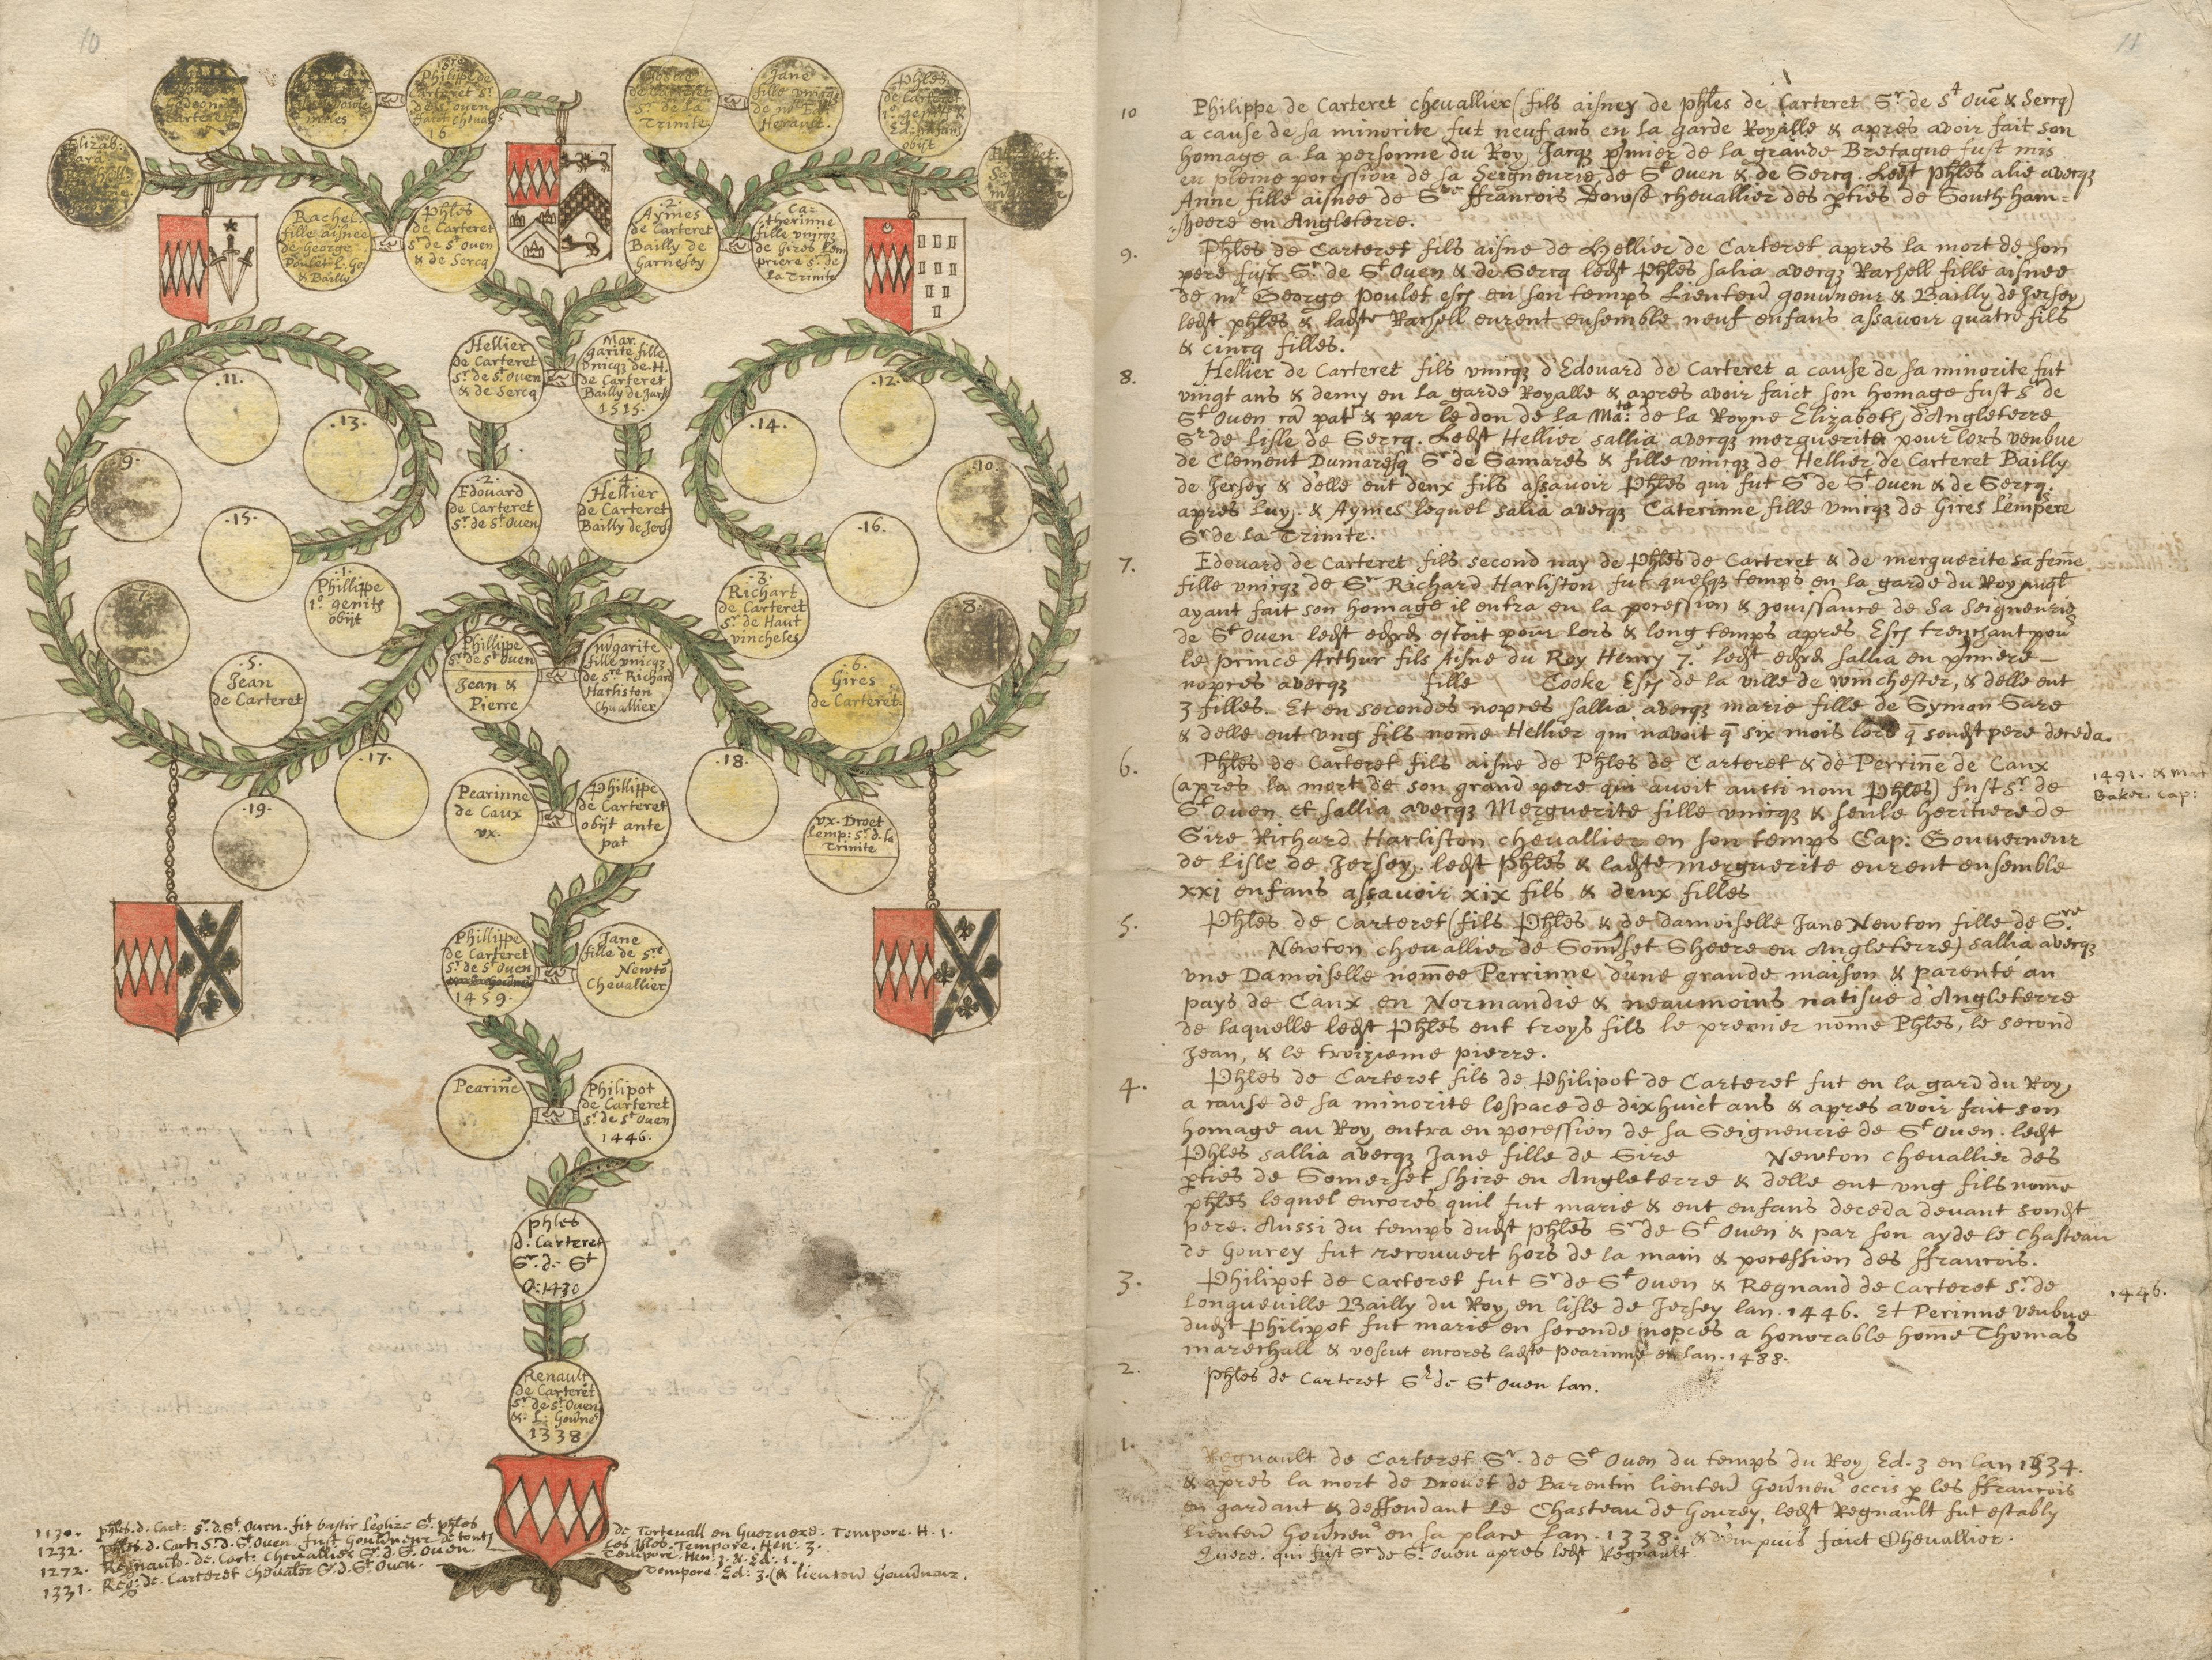 10
11
Philippe de
Carteret Sr
de St ouen
16
de Carteret
Sr de la
Trinite
Jane
fille vnicq
Herault.
Phles
de Carteret
obijt
Hedeon
Carteret
Elizab:
Rachel.
fille aisnee
de George
Poulet L: Go:
& Bailly
Phles
de Carteret
Sr de St ouen
& de Sercq
2.
Aymes
de Carteret
Bailly de
Garnesey
Ca-
therinne
fille vnicq
de Gires Lem
priere Sr de
la Trinite
Hellier
de Carteret
Sr de St Ouen
& de Sercq
Mar.
garite fille
vnicq de H.
de Carteret
Bailly de Jars
1515.
.11.
.12.
.13.
.14.
.9.
.10.
.2.
Edouard
de Carteret
Sr de St Ouen
.4.
Hellier
de Carteret
Bailly de Jers
.15.
.16.
.1.
Phillippe
1o genits
obijt
.3.
Richart
de Carteret
Sr de Haut
vincheles
7.
8.
Phillippe
Sr de St ouen
Jean &
Pierre
M'garite
fille vnicq
de Sre Richard
Harliston
Chuallier
.5.
Jean
de Carteret
.6.
Gires
de Carteret.
.17.
.18.
.19.
Pearinne
de Caux
vx.
Phillippe
de Carteret
obijt ante
pat
vx. Droet
Lemp: Sr. d. la
Trinite
Phillippe
de Carteret
Sr de St Ouen
1459.
Jane
fille de Sre
Newtō
Chevallier
Pearinē
Philipot
de Carteret
Sr de St Ouen
1446.
phles
d. Carteret
Sr. de St
O: 1430
Renault
de Carteret
Sr de St Ouen
&. L: Gouūer
1338
1130. phles. d. Cart: Sr. d. St. Ouen. fit bastir Leglize St. phles de Tortevall en Guerneze. Tempore. H. 1.
1232. phles. d. Cart: Sr. d. St. Ouen. fust Gouūneur de touts Les Isles. Tempore. Hen: 3.
1272. Regnauld. de. Cart: Chevallier Sr. d. St. Ouen. Tempore. Hen: 3. & Ed: 1.
1331. Reg: de. Carteret Chevaler Sr. d. St. Ouen. Tempore. Ed: 3. (& lieuteū Gouūneur.
10 Philippe de Carteret chevallier (fils aisney de phles de Carteret Sr de St Ouē & Sercq)
a cause de sa minorite fut neuf ans en la garde Royalle & apres avoir fait son
homage a la personne du Roy Jacq p̄mier de la grande Bretagne fust mis
en pleine pocession de sa Seigneurie de St Ouen & de Sercq. Ledt phles alie avecq
Anne fille aisnee de Sre ffrancois Dowse chevallier des p̄ties de South ham=
=sheere en Angleterre.
9. Phles de Carteret fils aisne de Hellier de Carteret apres la mort de son
pere fust Sr. de St Ouen & de Sercq ledt Phles salia avecq Rachell fille aisnee
de mr George Poulet esc en son temps Lieuteū gouūneur & Bailly de Jersey,
ledt phles & ladte Rachell eurent ensemble neuf enfans assavoir quatre fils
& cincq filles.
8. Hellier de Carteret fils vnicq d'Edouard de Carteret a cause de sa minorite fut
vingt ans & demy en la garde Royalle & apres avoir faict son homage fust Sr de
St Ouen ca pat & par le don de la Mate: de la Royne Elizabeth d'Angleterre
Sr de Lisle de Sercq. Ledt Hellier sallia avecq merguerite pour lors veubue
de Clement Dumaresq Sr de Samares & fille vnicq de Hellier de Carteret Bailly
de Jersey & delle eut deux fils assavoir Phles qui fut Sr de St Ouen & de Sercq.
apres luy. & Aymes lequel salia avecq Caterinne fille vnicq de Gires Lempere
Sr de la Trinite.
7. Edouard de Carteret fils second nay de Phles de Carteret & de merguerite sa femē
fille vnicq de Sr Richard Harliston fut quelq temps en la garde du Roy auqt
ayant fait son homage il entra en la pocession & jouissance de sa Seigneurie
de St Ouen ledt edrd estoit pour lors & long temps apres Esc trenchant pour
le prince Arthur fils Aisne du Roy Henry 7. ledt edrd sallia en p̄miere
nopces avecq fille Cooke Esc de la ville de winchester, & delle eut
3 filles. Et en secondes nopces sallia avecq marie fille de Symon Sare
& delle eut vng fils nomē Hellier qui navoit q̄ six mois lors q̄ sondt pere deceda.
6. Phles de Carteret fils aisne de Phles de Carteret & de Perrinē de Caux
(apres la mort de son grand pere qui avoit aussi nom Phles) fust Sr. de
St Ouen. et sallia avecq Merguerite fille vnicq & seule heritiere de
Sire Richard Harliston chevallier en son temps Cap: Gouverneur
de lisle de Jersey. ledt Phles & ladte merguerite eurent ensemble
xxi enfans assavoir xix fils & deux filles
1491.
Baker. cap:
5. Phles de Carteret (fils Phles & de damoiselle Jane Newton fille de Sre
Newton chevallier de Somset Sheere en Angleterre) sallia avecq
vne Damoiselle nomēe Perrinne d'une grande maison & parente au
pays de Caux en Normandie & neaumoins natisue d'Angleterre
de laquelle ledt Phles eut troys fils le premier nomē Phles, le second
Jean, & le troizieme pierre.
4. Phles de Carteret fils de Philipot de Carteret fut en la gard du Roy,
a cause de sa minorite lespace de dixhuict ans & apres avoir fait son
homage au Roy entra en pocession de sa Seigneurie de St Ouen. ledt
Phles sallia avecq Jane fille de Sire Newton chevallier des
p̄ties de Somerset shire en Angleterre & delle eut vng fils nomē
phles lequel encores quil fut marie & eut enfans deceda devant sondt
pere. Aussi du temps dudt phles Sr de St Ouen & par son ayde le Chasteau
de Gourey fut recouvert hors de la main & pocession des ffrancois.
3. Philipot de Carteret fut Sr de St Ouen & Regnaud de Carteret Sr. de
Longueville Bailly du Roy en lisle de Jersey lan. 1446. Et Perinne veubue
1446.
dudt Philipot fut marie en seconde nopces a honorable homē Thomas
marechall & vescut encores ladte pearinne en lan. 1488.
2. Phles de Carteret Sr de St Ouen lan.
1. Regnault de Carteret Sr. de St Ouen du temps du Roy Ed. 3 en lan 1334.
& apres la mort de Drouet de Barentin lieuteū Gouūneur occis p les ffrancois
en gardant & deffendant le Chasteau de Gourey, ledt Regnault fut estably
lieuteū Gouūneur en sa place lan. 1338. & dempuis faict Chevallier.
Quere. qui fust Sr de St Ouen apres ledt Regnault